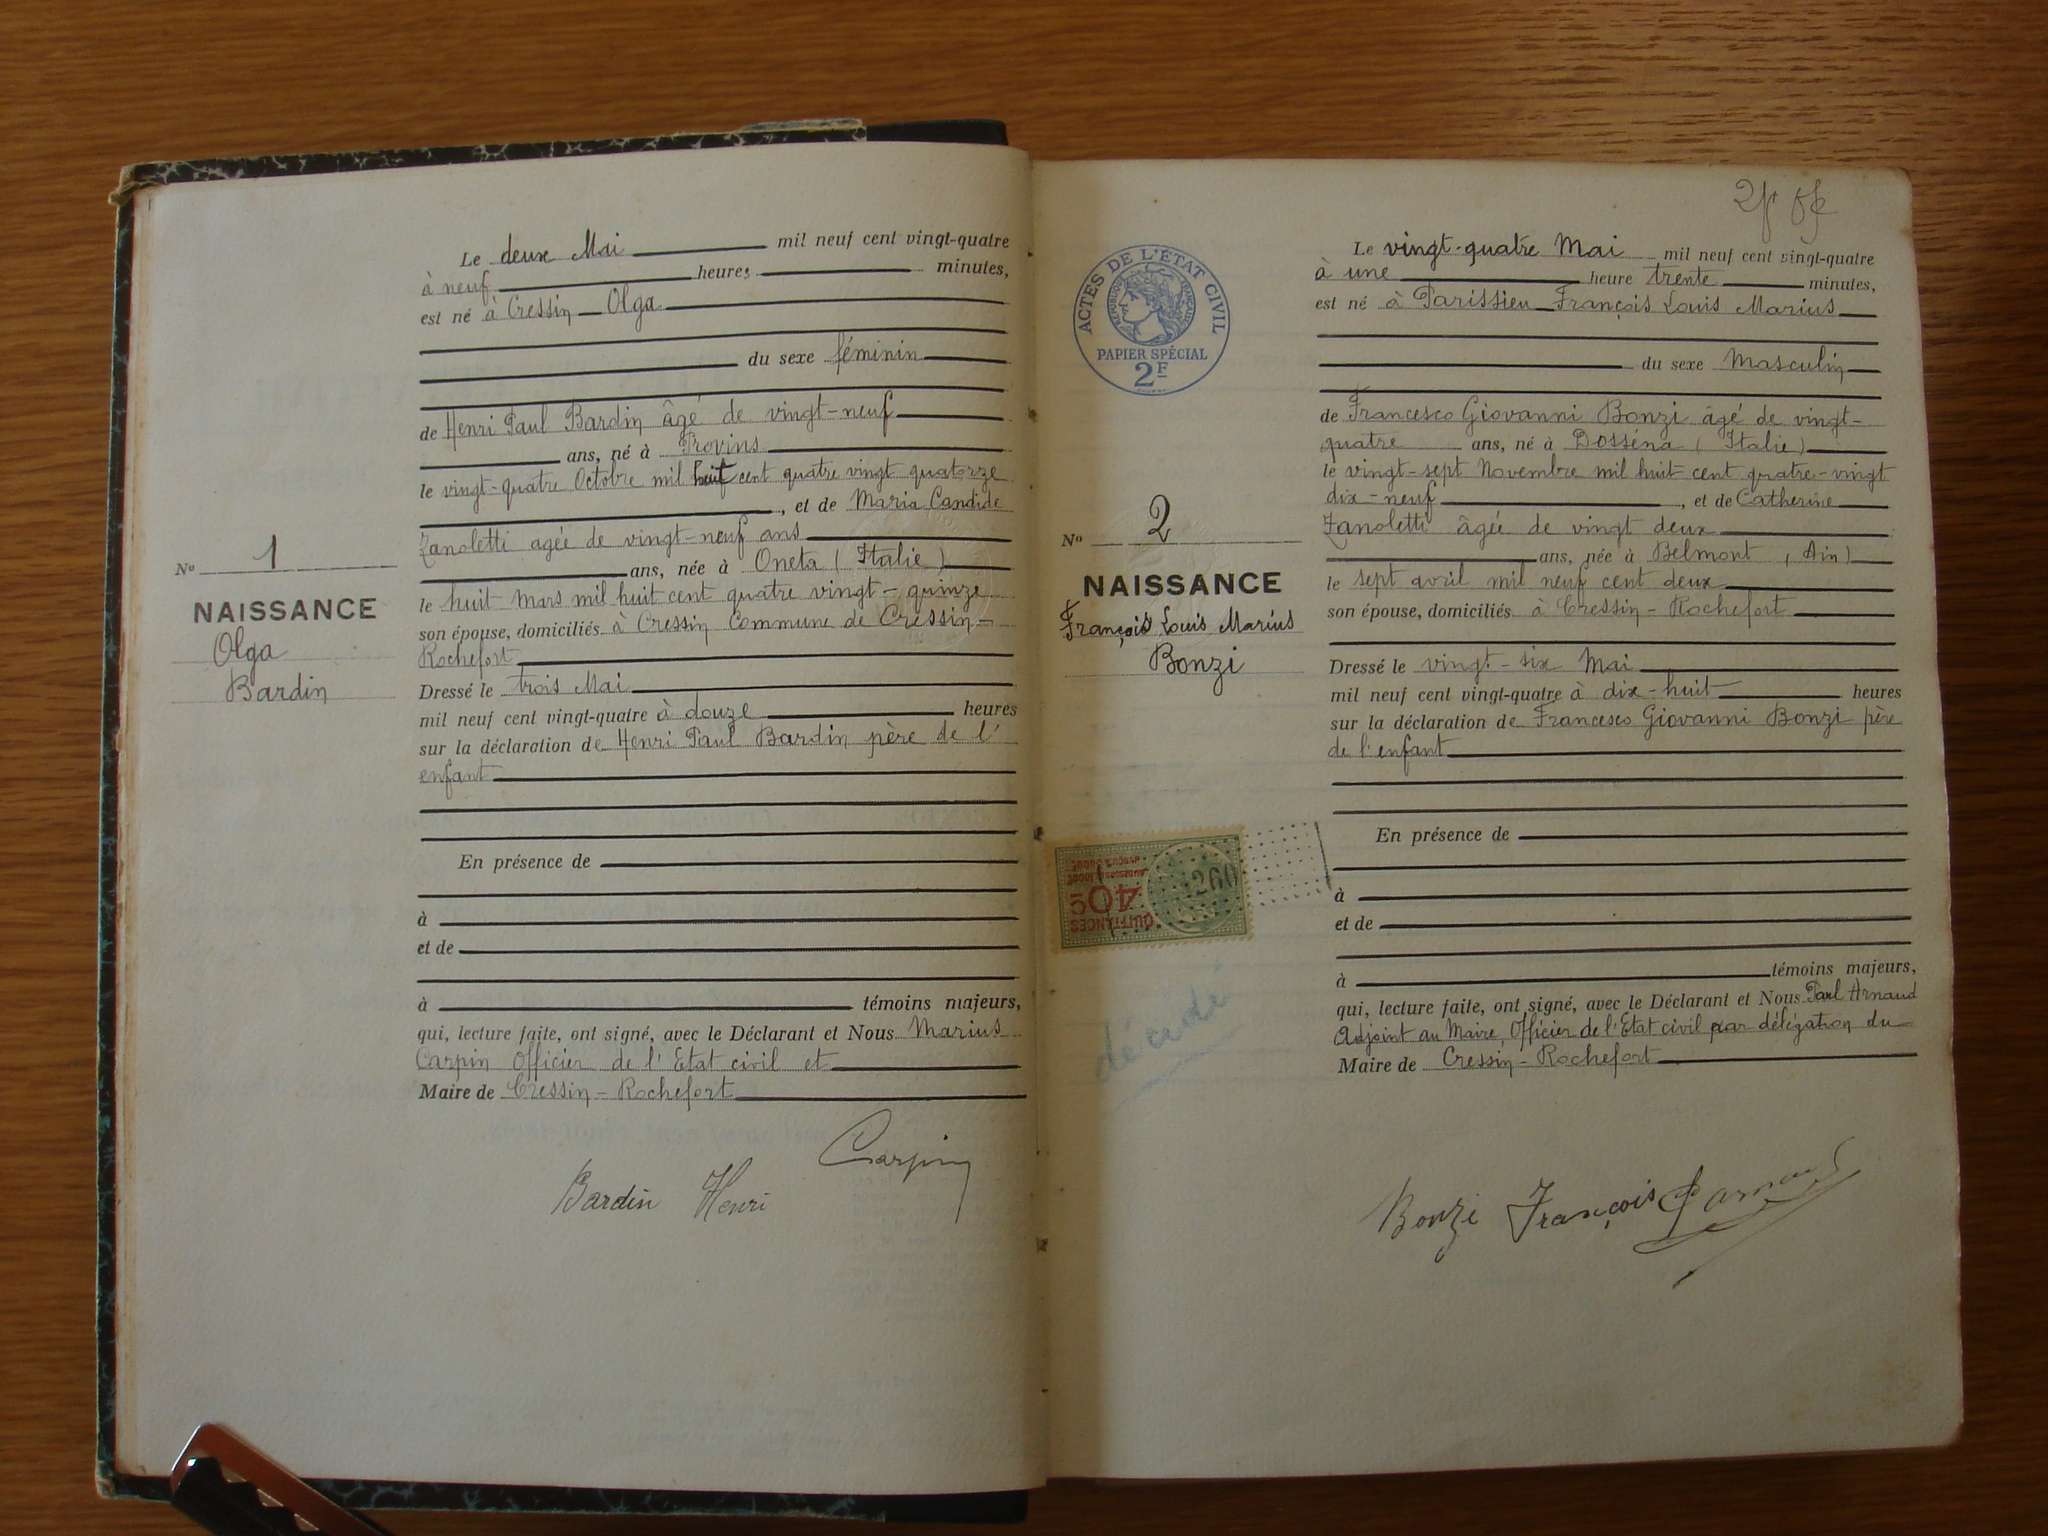 Le deux Mai mil neuf cent vingt-quatre
à neuf heures minutes,
est né à Cressin Olga
du sexe féminin
de Henri Paul Bardin âgé de vingt-neuf
ans, né à Provins
le vingt-quatre Octobre mil huit cent quatre vingt quatorze
, et de Maria Candide
Zanoletti agée de vingt-neuf ans
ans, née à Oneta (Italie)
le huit Mars mil huit cent quatre vingt-quinze
son épouse, domiciliés à Cressin Commune de Cressin-
Rochefort
Dressé le trois Mai
mil neuf cent vingt-quatre à douze heures
sur la déclaration de Henri Paul Bardin père de l'
enfant
En présence de
à
et de
à témoins majeurs,
qui, lecture faite, ont signé, avec le Déclarant et Nous Marius
Carpin Officier de l'Etat civil et
Maire de Cressin-Rochefort
Carpin
Bardin Henri
No 1
NAISSANCE
Olga
Bardin
ACTES DE L'ÉTAT CIVIL
RÉPUBLIQUE FRANÇAISE
PAPIER SPÉCIAL
2F
No 2
NAISSANCE
François Louis Marius
Bonzi
QUITTANCES
40c
260
décédé
Le vingt-quatre Mai mil neuf cent vingt-quatre
à une heure trente minutes,
est né à Parissieu François Louis Marius
du sexe Masculin
de Francesco Giovanni Bonzi âgé de vingt-
quatre ans, né à Dosséna (Italie)
le vingt-sept Novembre mil huit cent quatre-vingt
dix-neuf , et de Catherine
Zanoletti âgée de vingt deux
ans, née à Belmont (Ain)
le sept avril mil neuf cent deux
son épouse, domiciliés à Cressin-Rochefort
Dressé le vingt-six Mai
mil neuf cent vingt-quatre à dix-huit heures
sur la déclaration de Francesco Giovanni Bonzi père
de l'enfant
En présence de
à
et de
à témoins majeurs,
qui, lecture faite, ont signé, avec le Déclarant et Nous Paul Arnaud
Adjoint au Maire, Officier de l'Etat civil par délégation du
Maire de Cressin-Rochefort
Bonzi François P Arnaud